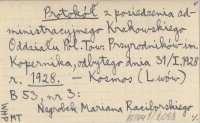 Protokół z posiedzenia ad-
ministracyjnego Krakowskiego
Oddziału Pol. Tow. Przyrodników im.
Kopernika, odbytego dnia 31/I.1928
r. 1928. — Kosmos (Lwów)
B 53, nr 3:
Nagrobek Mariana Raciborskiego
WHP
MT